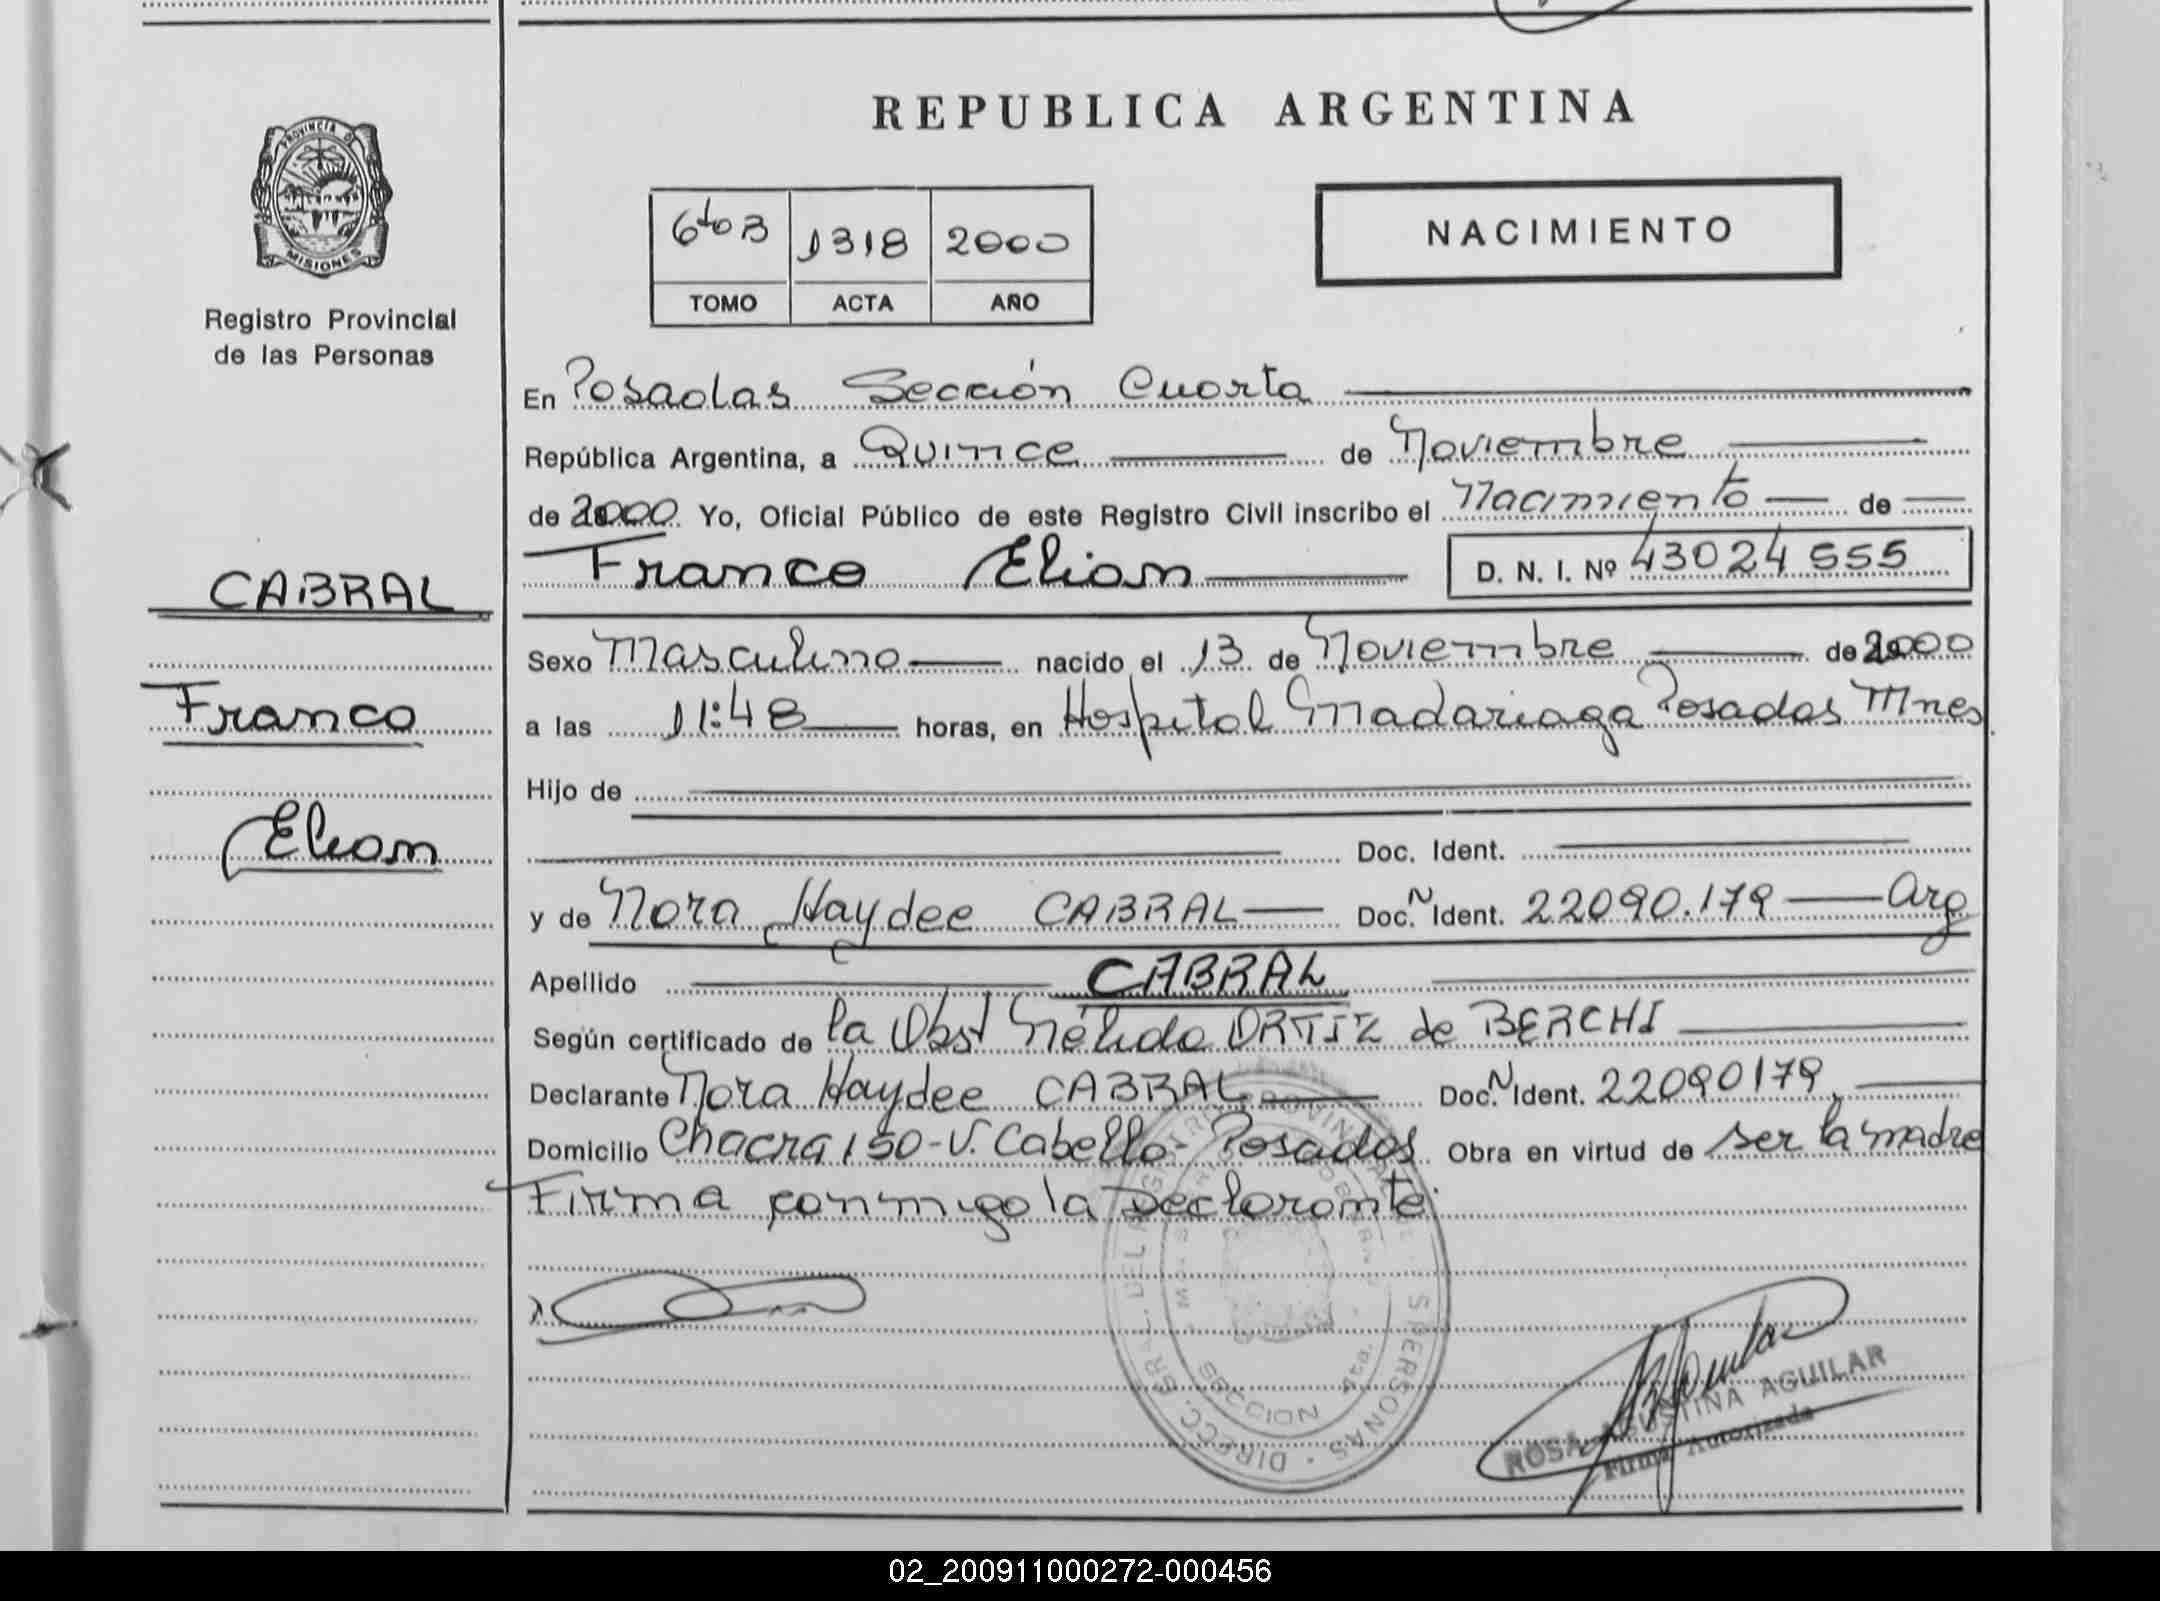 PROVINCIA DE
MISIONES
Registro Provincial
de las Personas
CABRAL
Franco
Elian
REPUBLICA ARGENTINA
6to B 1318 2000
TOMO ACTA AÑO
NACIMIENTO
En Posadas Sección Cuarta
República Argentina, a Quince de Noviembre
de 2000 Yo, Oficial Público de este Registro Civil inscribo el Nacimiento de
Franco Elian D. N. I. Nº 43024555
Sexo Masculino nacido el 13 de Noviembre de 2000
a las 11:48 horas, en Hospital Madariaga Posadas Mnes
Hijo de
Doc. Ident.
y de Nora Haydee CABRAL Doc. N Ident. 22090.179 Arg
Apellido CABRAL
Según certificado de la Obst Nélida ORTIZ de BERCHI
Declarante Nora Haydee CABRAL Doc. N Ident. 22090179
Domicilio Chacra 150 - V. Cabello - Posadas Obra en virtud de ser la madre
Firma conmigo la Declarante
SECCION 4ta.
ROSA AGUSTINA AGUILAR
Firma Autorizada
02_200911000272-000456